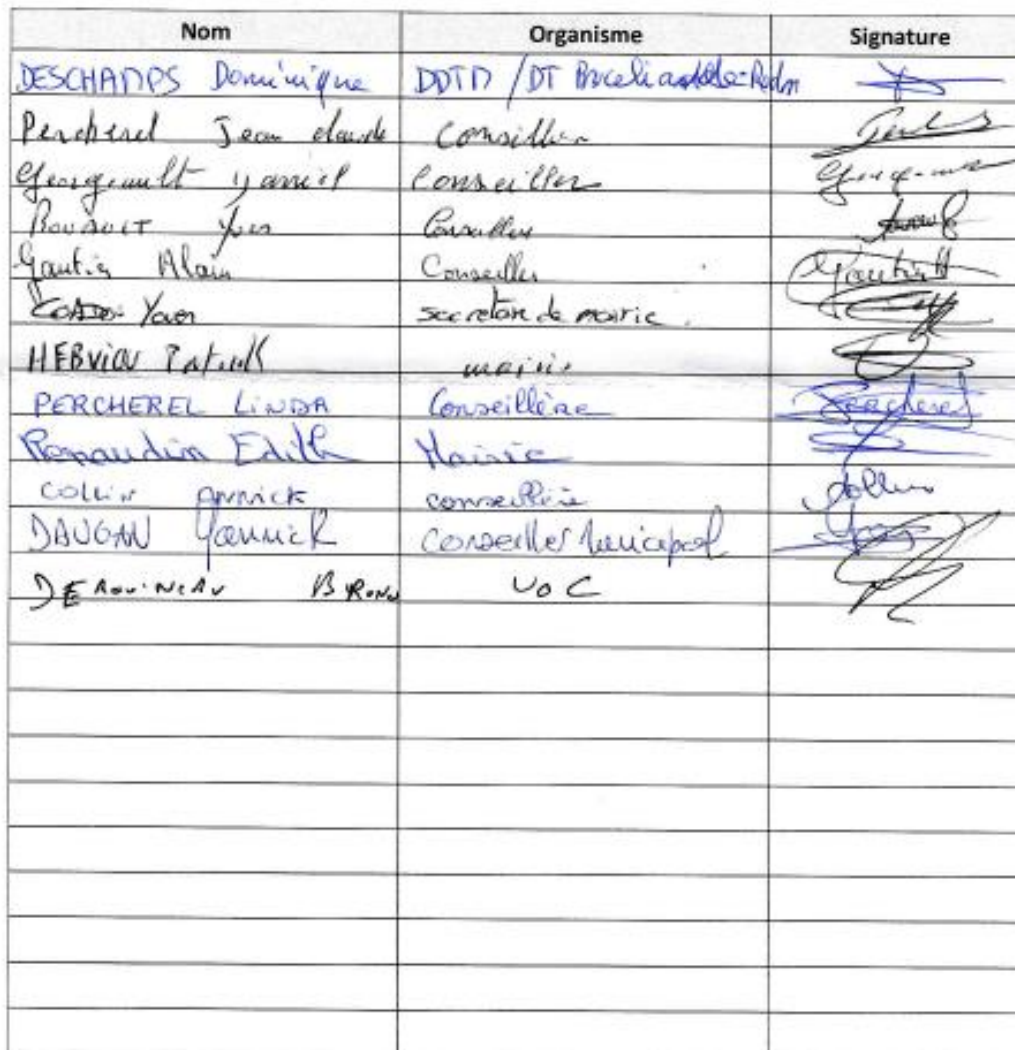 Nom Organisme Signature
DESCHAMPS Dominique DDTM / DT
Percherel Jean claude Conseiller
Georgeault yannick Conseiller
Yves Conseiller
Gautier Alain Conseiller Gautier A
Yoven secretaire de mairie.
HERVIOU Patrick mairie
PERCHEREL LINDA Conseillère Percherel
Renaudin Edith Mairie
COLLIN ANNICK conseillère Collin
DAUGAN Yannick Conseiller Municipal
UOC